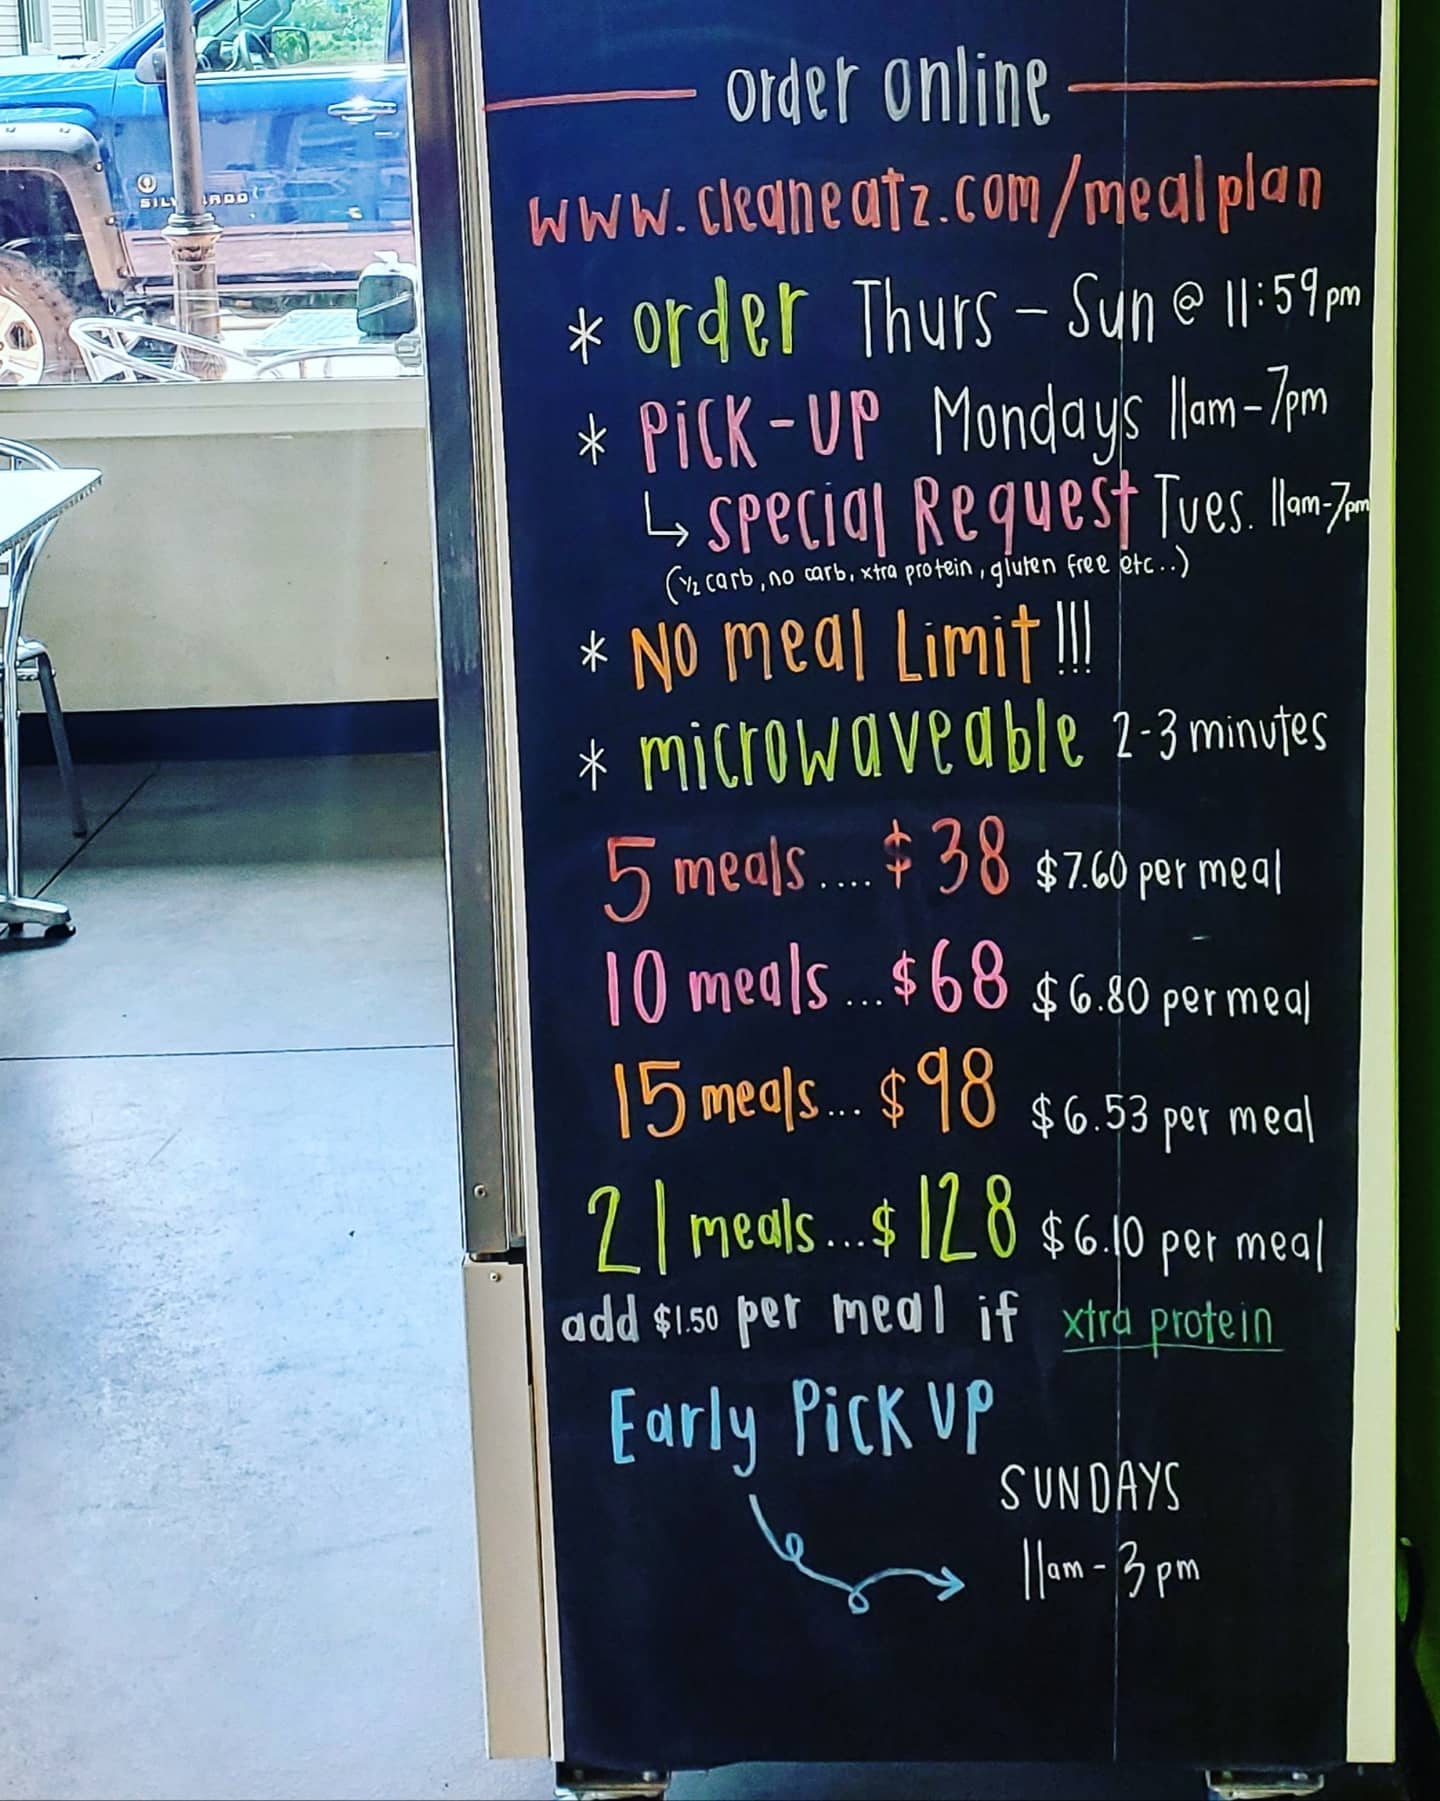 order online
www.cleaneatz.com/mealplan
* order Thurs - Sun @ 11:59pm
* PiCK-UP Mondays 11am-7pm
↳ Special Request Tues. 11am-7pm
(½ carb, no carb, xtra protein, gluten free etc..)
* NO meal Limit!!!
* microwaveable 2-3 minutes
5 meals.... $38 $7.60 per meal
10 meals...$68 $6.80 per meal
15 meals... $98 $6.53 per meal
21 meals...$128 $6.10 per meal
add $1.50 per meal if xtra protein
Early Pick UP
SUNDAYS
11am-3pm